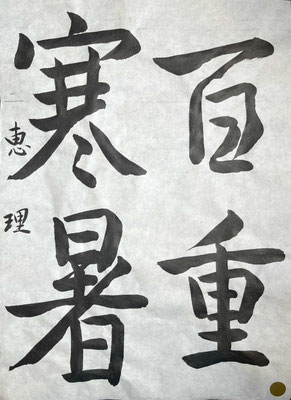 百重
寒暑
二 恵理